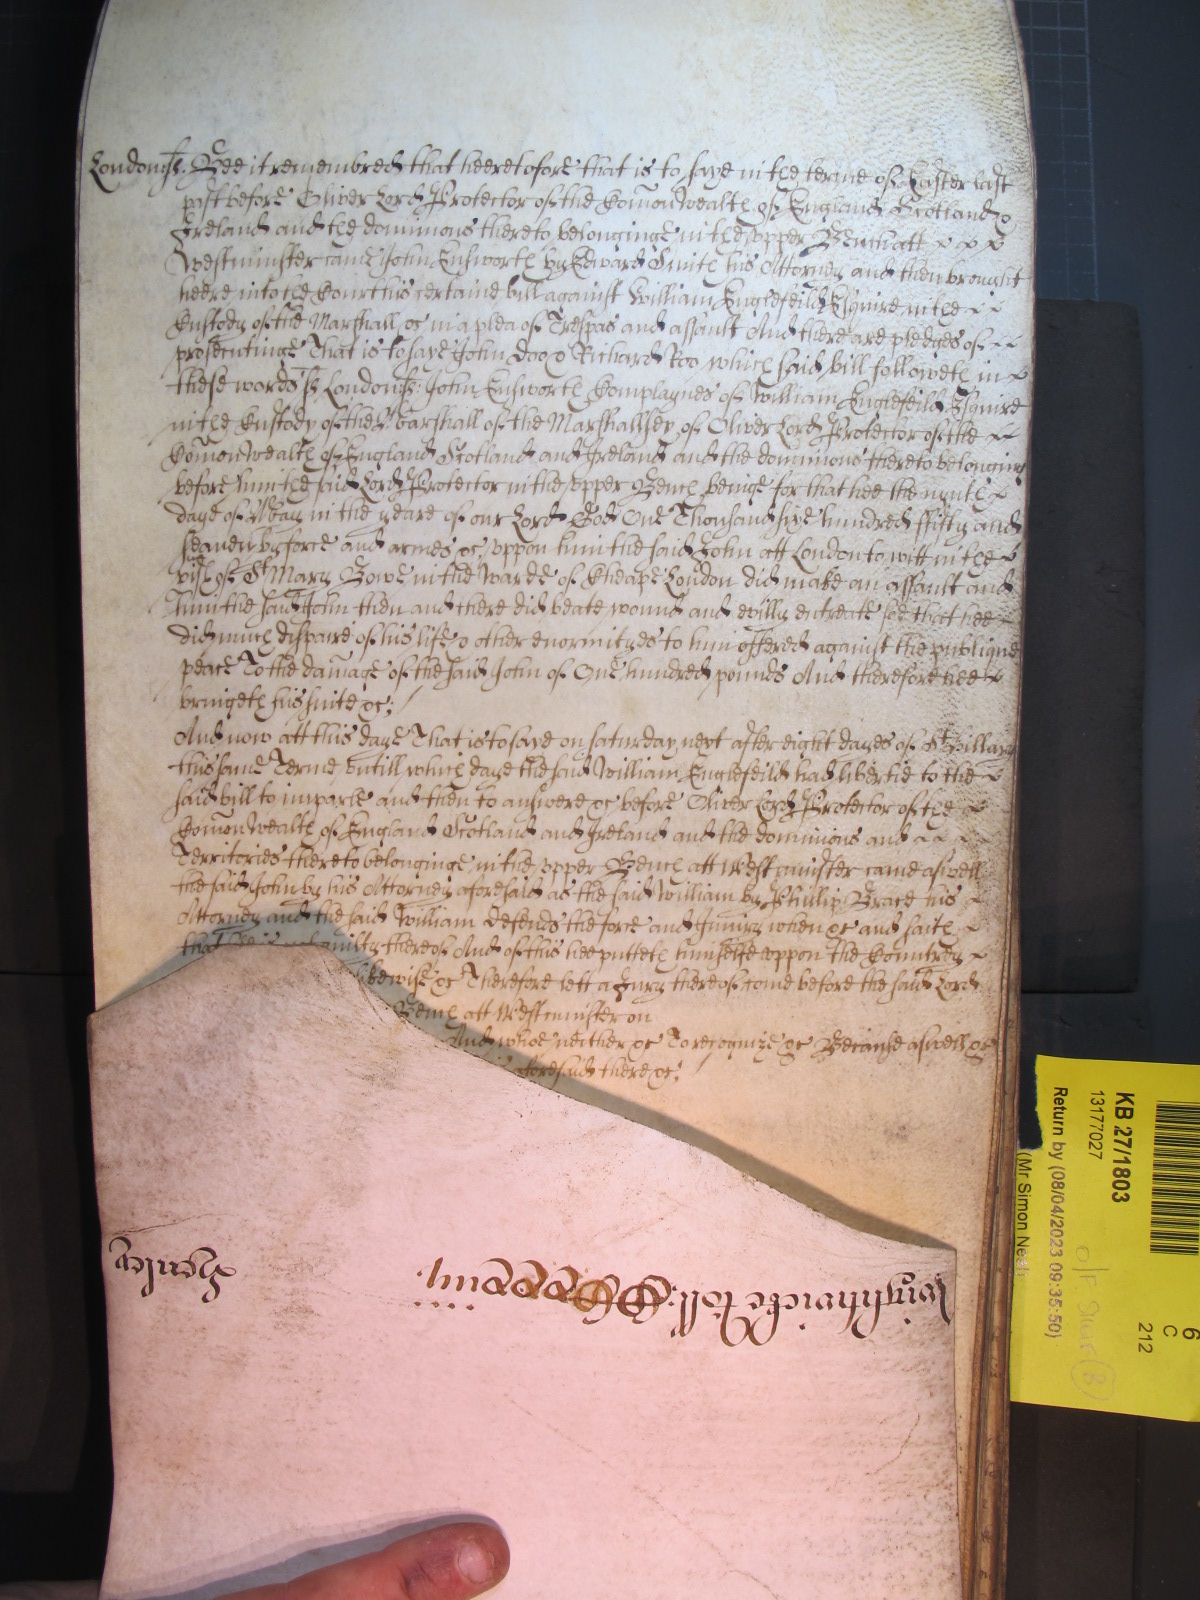 London ss: Bee it remembred that heeretofore that is to saye in the terme of Easter last
past before Oliver Lord Protector of the Comon Wealth of England Scotland &
Ireland and the dominions thereto belonginge in the upper Bench att
Westminster came John Ensworth by Edward Smith his Attorney and then brought
heere into the Court his certaine bill against William Englefeild Esquire in the
Custody of the Marshall &c in a plea of Trespas and assault And there are pledges of
prosecutinge That is to saye John Doo & Richard Roo which said bill followeth in
these words ss London ss: John Ensworth Complaynes of William Englefeild Esquire
in the Custody of the Marshall of the Marshallsey of Oliver Lord Protector of the
Comon Wealth of England Scotland and Ireland and the dominions thereto belonging
before him the said Lord Protector in the upper Bench beinge for that hee the nynth
daye of May in the yeare of our Lord God One Thousand sixe hundred fifty and
seaven by force and armes &c uppon him the said John att London to witt in the
pish of St Mary Bowe in the Warde of Cheape London did make an assault and
him the said John then and there did beate wound and evilly entreate soe that hee
did much dispaire of his life & other enormityes to him offered against the publique
peace To the damage of the said John of One hundred pounds And therefore hee
bringeth his suite &c;
And now att this daye That is to saye on saturday next after eight dayes of St Hillary
this same Terme untill which daye the said William Englefeild had libertie to the
said bill to imparle and then to answere &c before Oliver Lord Protector of the
Comon Wealth of England Scotland and Ireland and the dominions and
Territories thereto belonginge in the upper Bench att Westminster came aswell
the said John by his Attorney aforesaid as the said William by Phillip Brace his
Attorney and the said William defends the force and Iniury when &c and saith
that hee is not guilty thereof And of this hee putteth himselfe uppon the Countrey
likewise &c Therefore lett a Jury thereof come before the said Lord
Bench att Westminster on
And whoe neither &c To recognize &c Because aswell &c
aforesaid there &c;
KB 27/1803
13177027
Return by (08/04/2023 09:35:50)
(Mr Simon Neal)
6
C
212